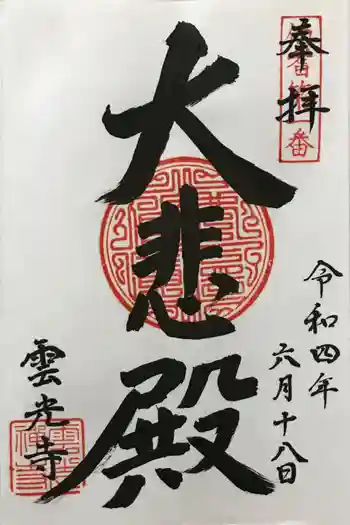 奉拝
大悲殿
令和四年
六月十八日
雲光寺